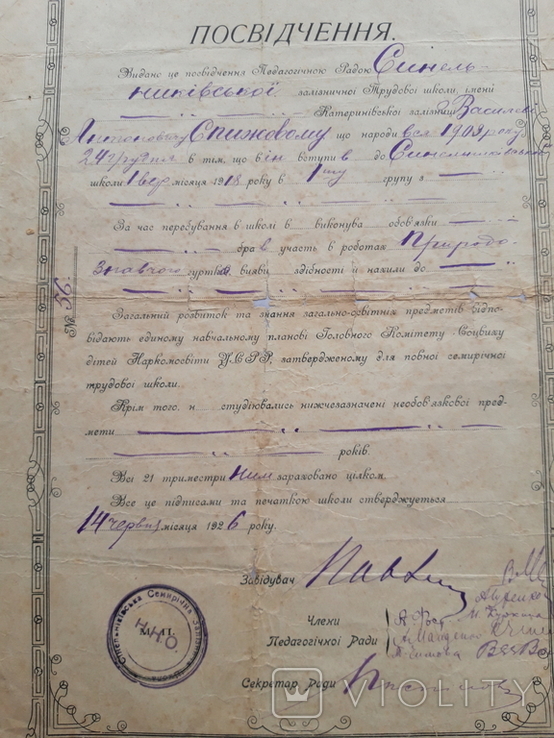 ПОСВІДЧЕННЯ.
Видано це посвідчення Педагогичною Радою Синель-
никівської залізничної Трудової школи, імені
Катерининської залізниці Василю
Антоновичу Спижовому що народивсь 1908 року
24 грудня в тім, що він вступив до Синельниківської
школи 1 вер. місяця 1918 року в 1 шу групу з
За час перебування в школі в виконував обов'язки
брав участь в роботах Природо-
знавчого гуртка, виявив здібності й нахили до
№ 56
Загальний розвиток та знання загально-освітніх предметів відпо-
відають единому навчальному планові Головного Комітету Соцвиху
дітей Наркомосвіти У.С.Р.Р, затвердженому для повної семирічної
трудової школи.
Крім того, н студіювались нижчезазначені необов'язкової пред-
мети
років.
Всі 21 триместри ним зараховано цілком.
Все це підписами та печаткою школи стверджується
14 червня місяця 1926 року.
Завідувач
Члени
Педагогічної Ради
Секретар Ради
Синельниківська Семирічна
Н.К.О.
М.П.
VIOLITY